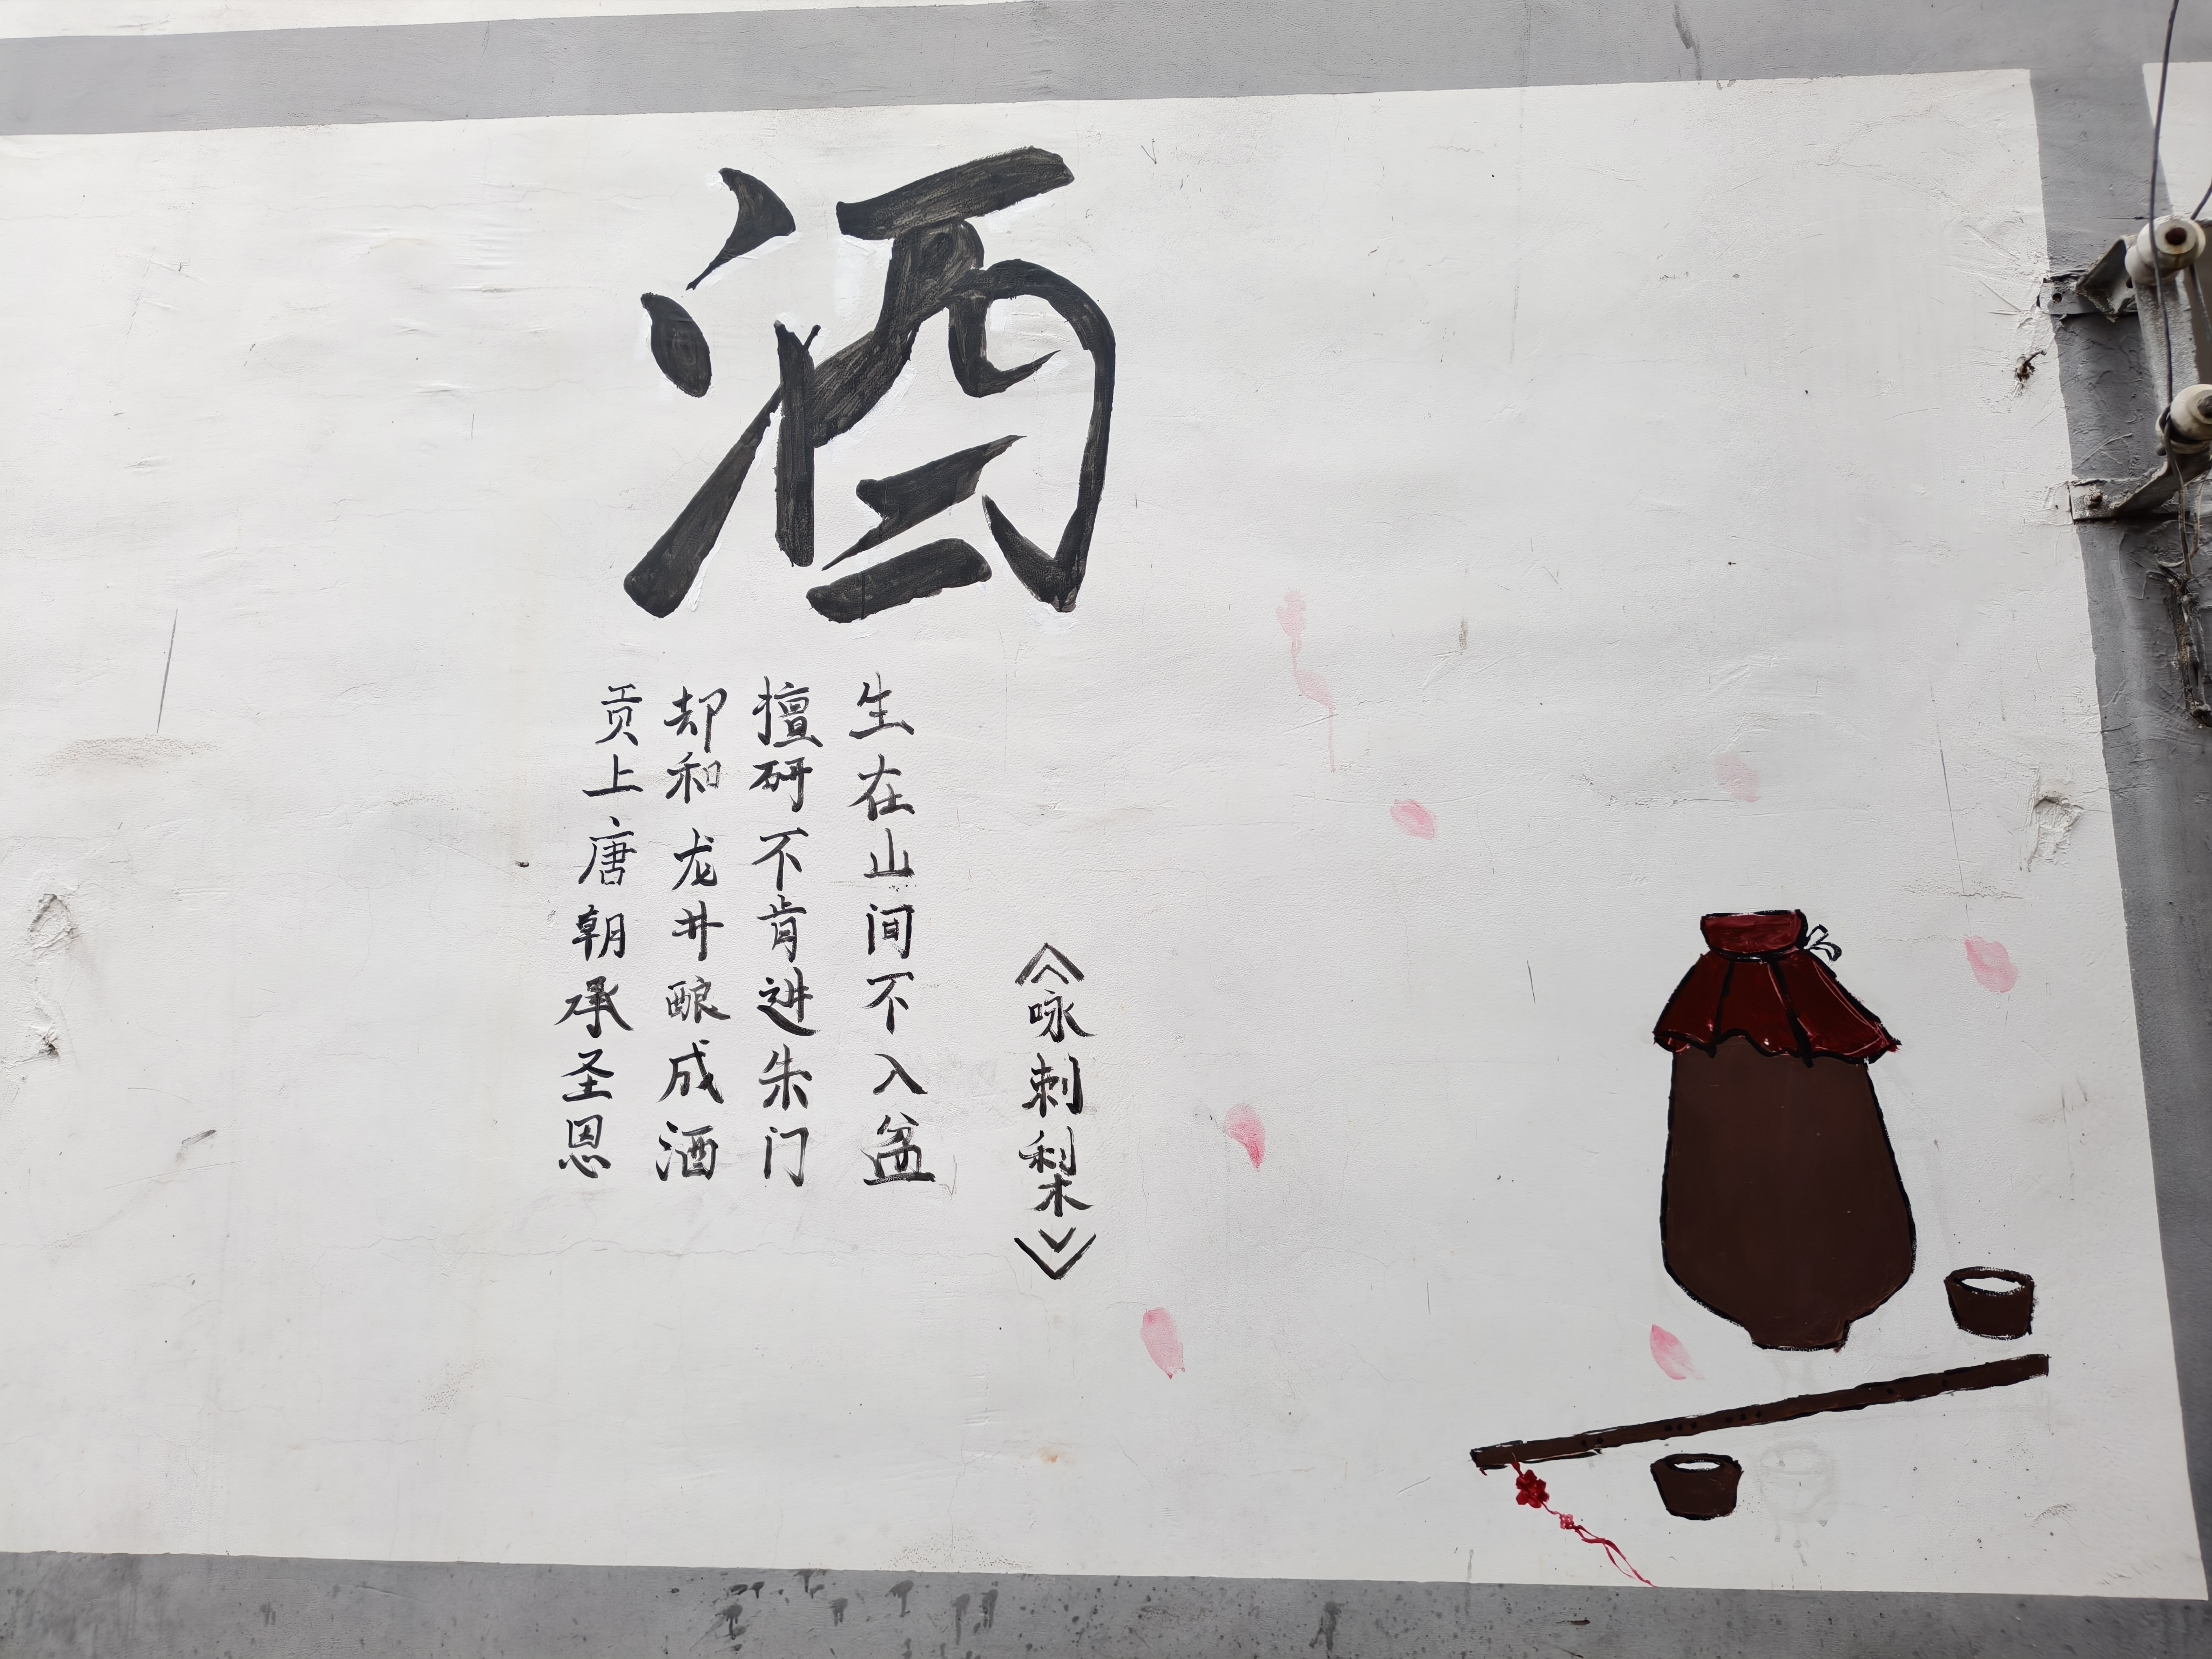 酒
《咏刺梨》
生在山间不入盆
擅研不肯进朱门
却和龙井酿成酒
贡上唐朝承圣恩